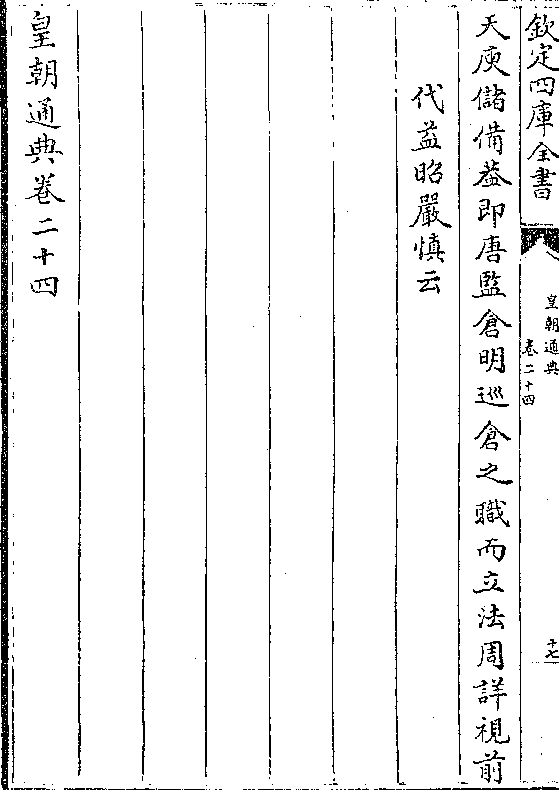 欽定四庫全書
皇朝通典
卷二十四
十七
天庾儲備葢即唐監倉明巡倉之職而立法周詳視前
代益昭嚴慎云
皇朝通典卷二十四